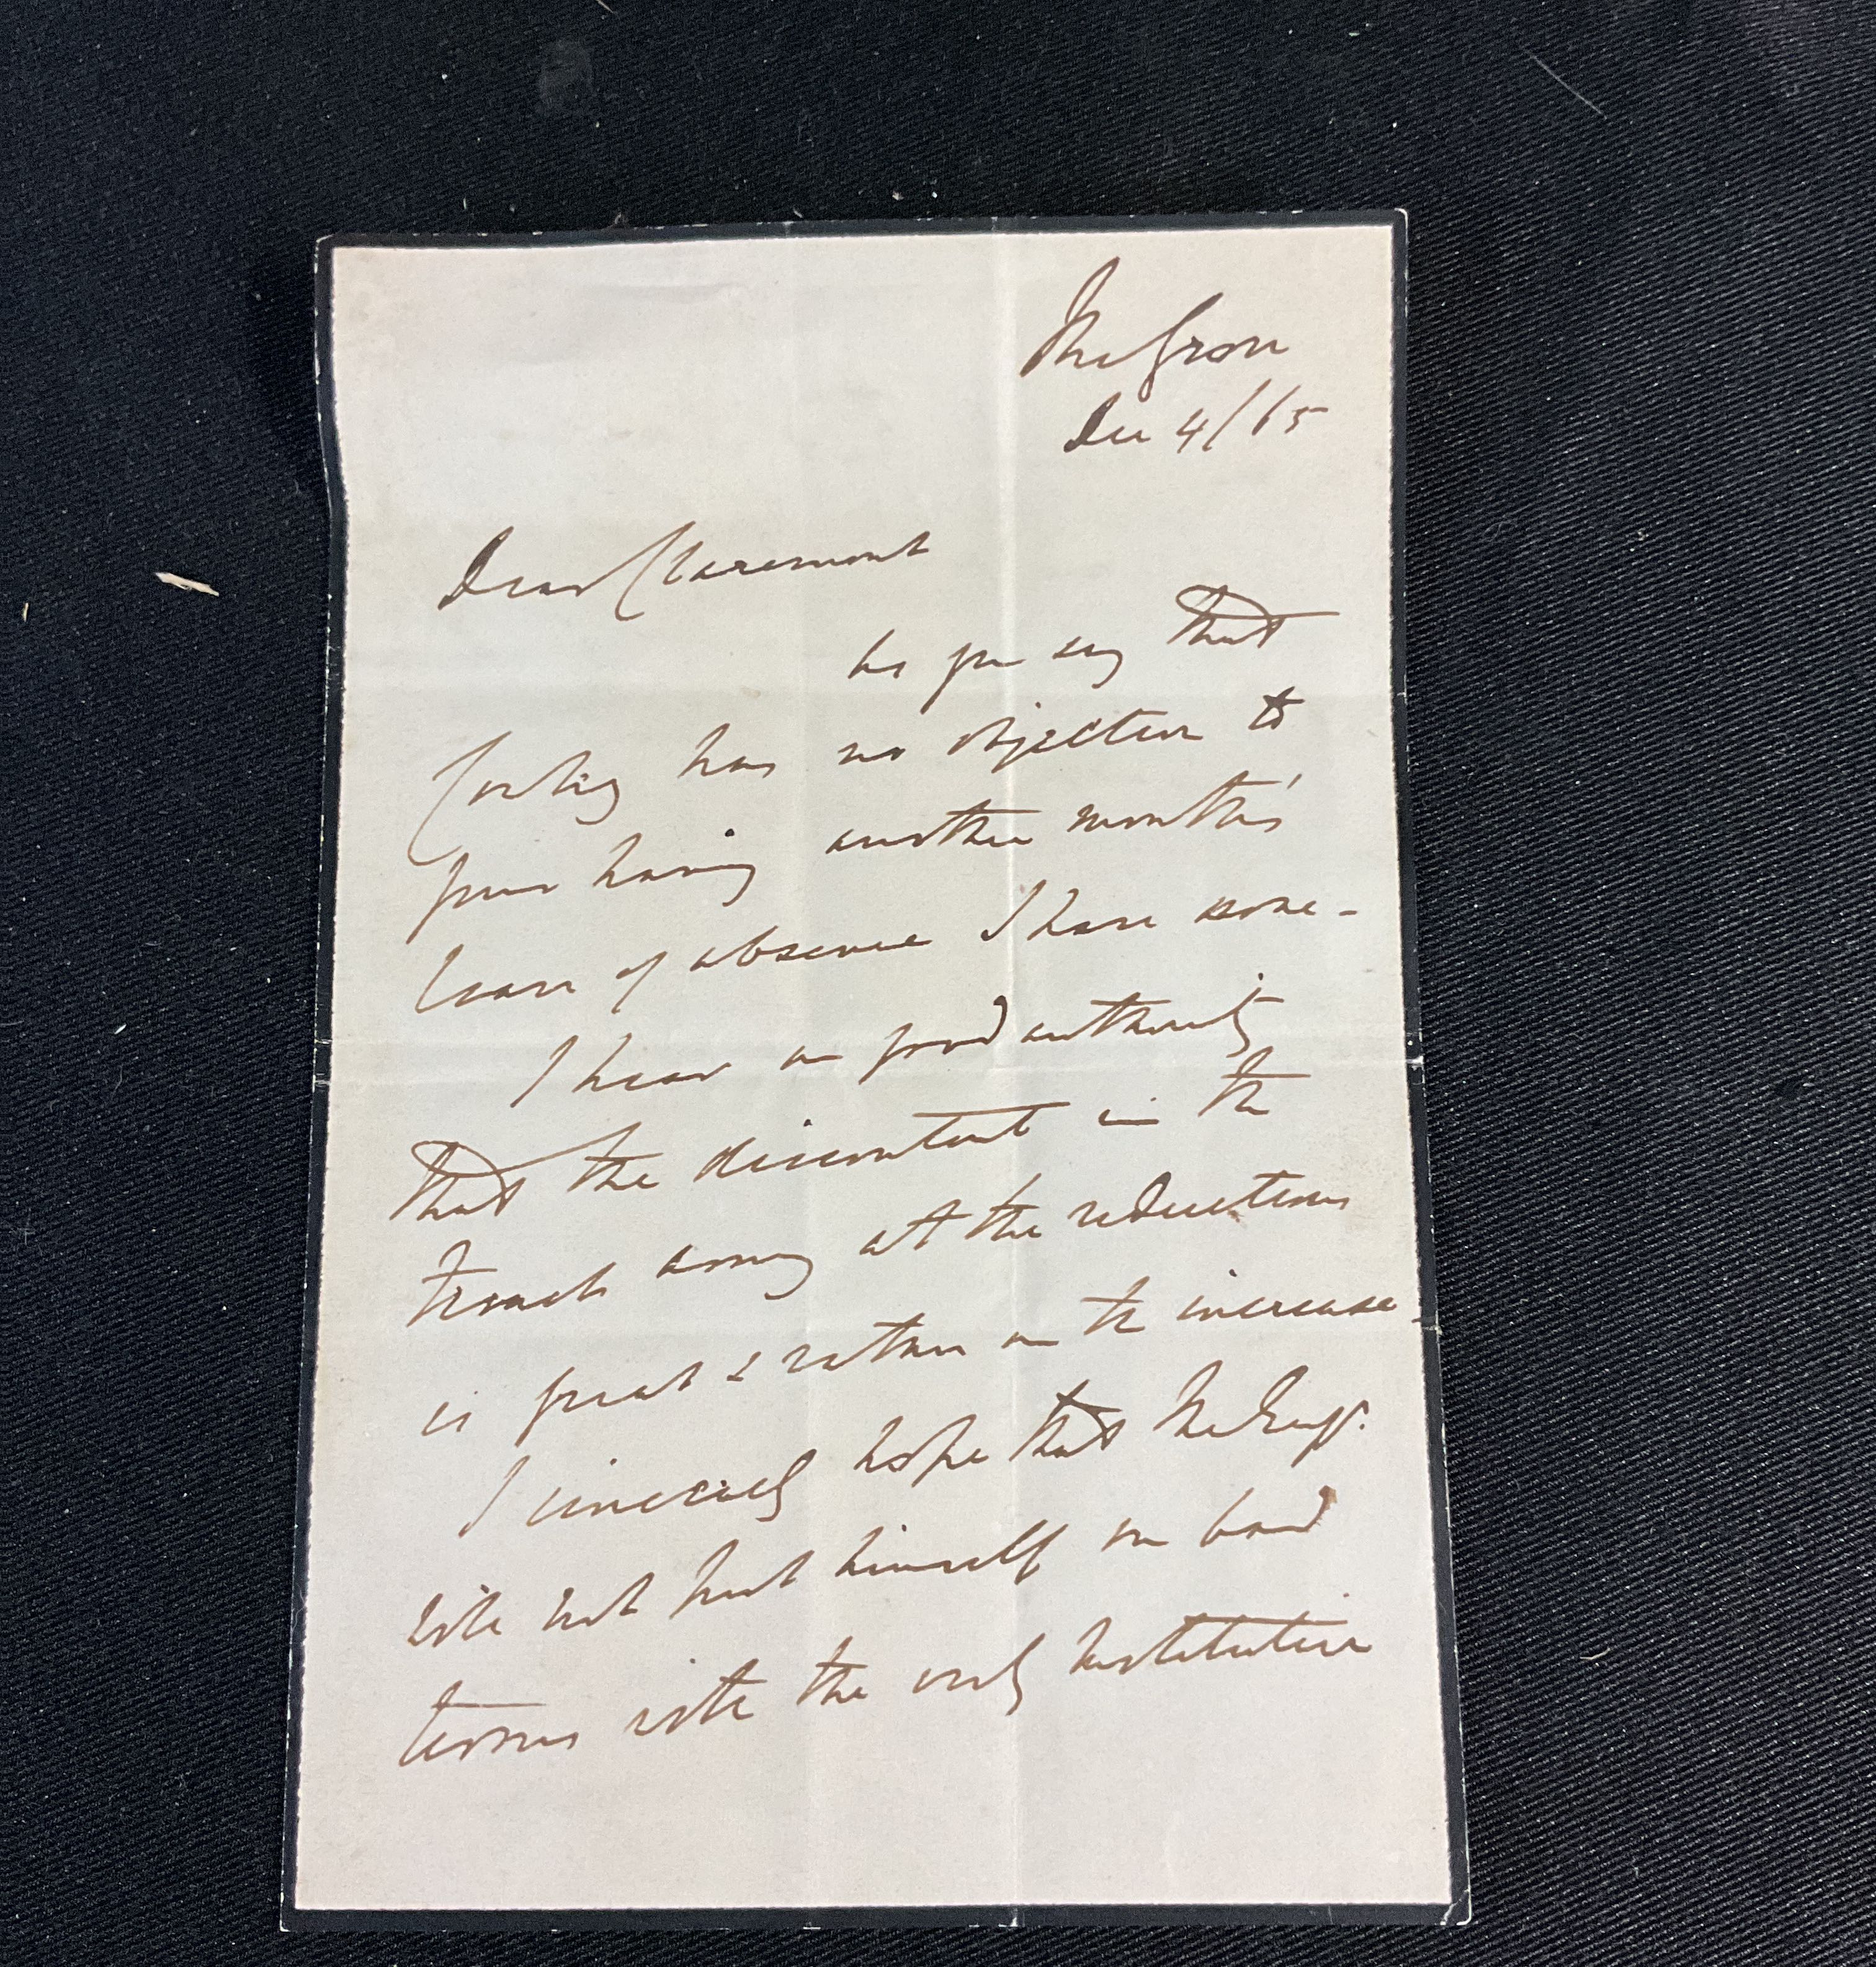 The Grove
Dec 4/65
Dear Claremont
As you say that
Cowley has no objection to
your having another month's
leave of absence I have none -
I hear on good authority
that the discontent in the
French army at the reductions
is great & rather on the increase
I sincerely hope that the Emp.
will not put himself on bad
terms with the only Institution